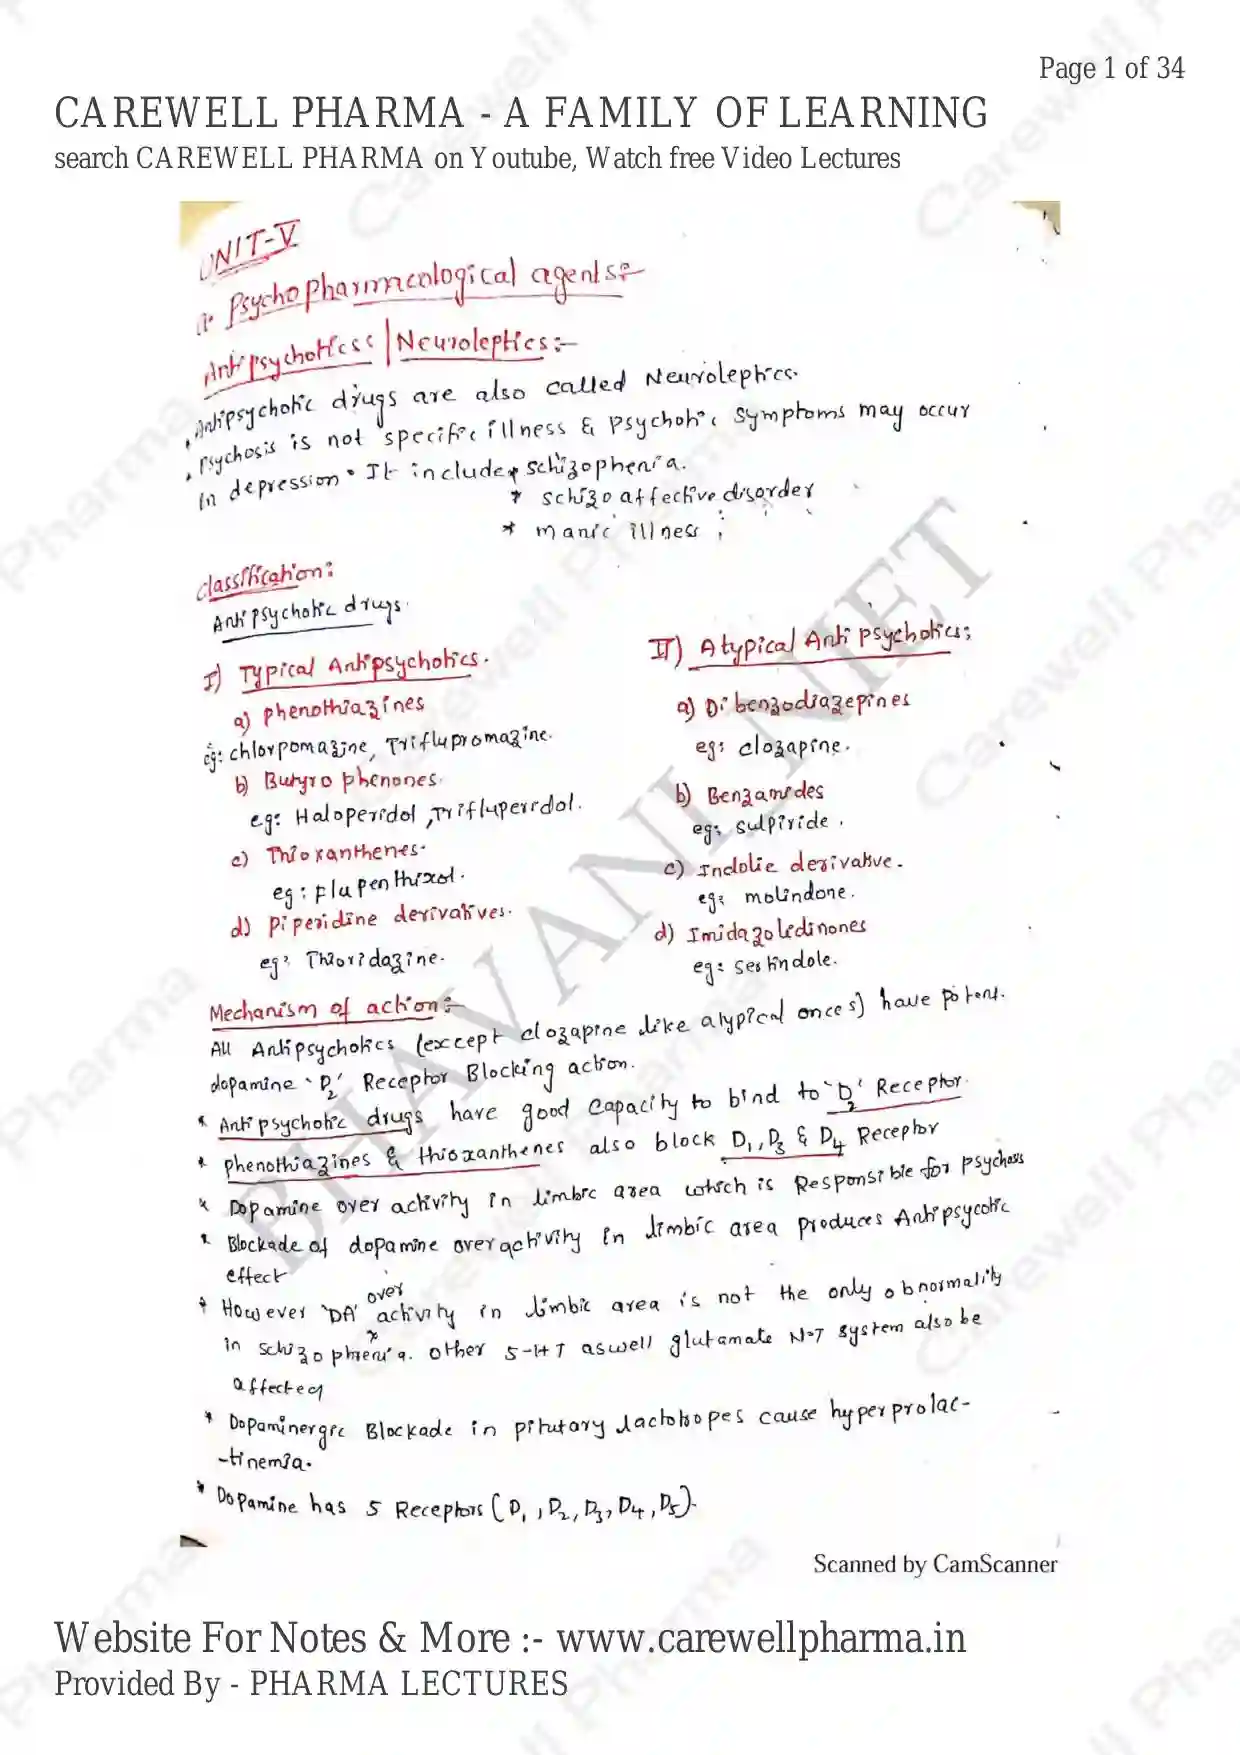 Page 1 of 34
CAREWELL PHARMA - A FAMILY OF LEARNING
search CAREWELL PHARMA on Youtube, Watch free Video Lectures
UNIT-V
Psychopharmcological agents:-
Antipsychotics | Neuroleptics:-
Antipsychotic drugs are also called Neuroleptics.
Psychosis is not specific illness & psychotic symptoms may occur
in depression. It include * schizophenia.
* schizoaffective disorder
* manic illness ;
Classification:
Antipsychotic drugs.
I) Typical Antipsychotics.
a) phenothiazines
eg: chlorpomazine, Triflupromazine.
b) Butyro phenones.
eg: Haloperidol, Trifluperidol.
c) Thioxanthenes.
eg: flupenthixol.
d) Piperidine derivatives.
eg: Thioridazine.
II) Atypical Antipsychotics:
a) Dibenzodiazepines
eg: clozapine.
b) Benzamides
eg: sulpiride.
c) Indolie derivative.
eg: molindone.
d) Imidazoledinones
eg: sertindole.
Mechanism of action:-
All Antipsychotics (except clozapine like atypical onces) have potent.
dopamine 'D2' Receptor Blocking action.
* Antipsychotic drugs have good capacity to bind to 'D2' Receptor.
* phenothiazines & thioxanthenes also block D1, D3 & D4 Receptor
* Dopamine over activity in limbic area which is Responsible for psychosis
* Blockade of dopamine overactivity in limbic area produces Antipsycotic
effect
over
* However 'DA' activity in limbic area is not the only abnormality
in schizophrenia. other 5-HT aswell glutamate N.T system also be
affected
* Dopaminergic Blockade in pitutary lactotropes cause hyperprolac-
-tinemia.
* Dopamine has 5 Receptors (D1, D2, D3, D4, D5).
BHAVANI_NIET
Scanned by CamScanner
Website For Notes & More :- www.carewellpharma.in
Provided By - PHARMA LECTURES
Carewell Pharma